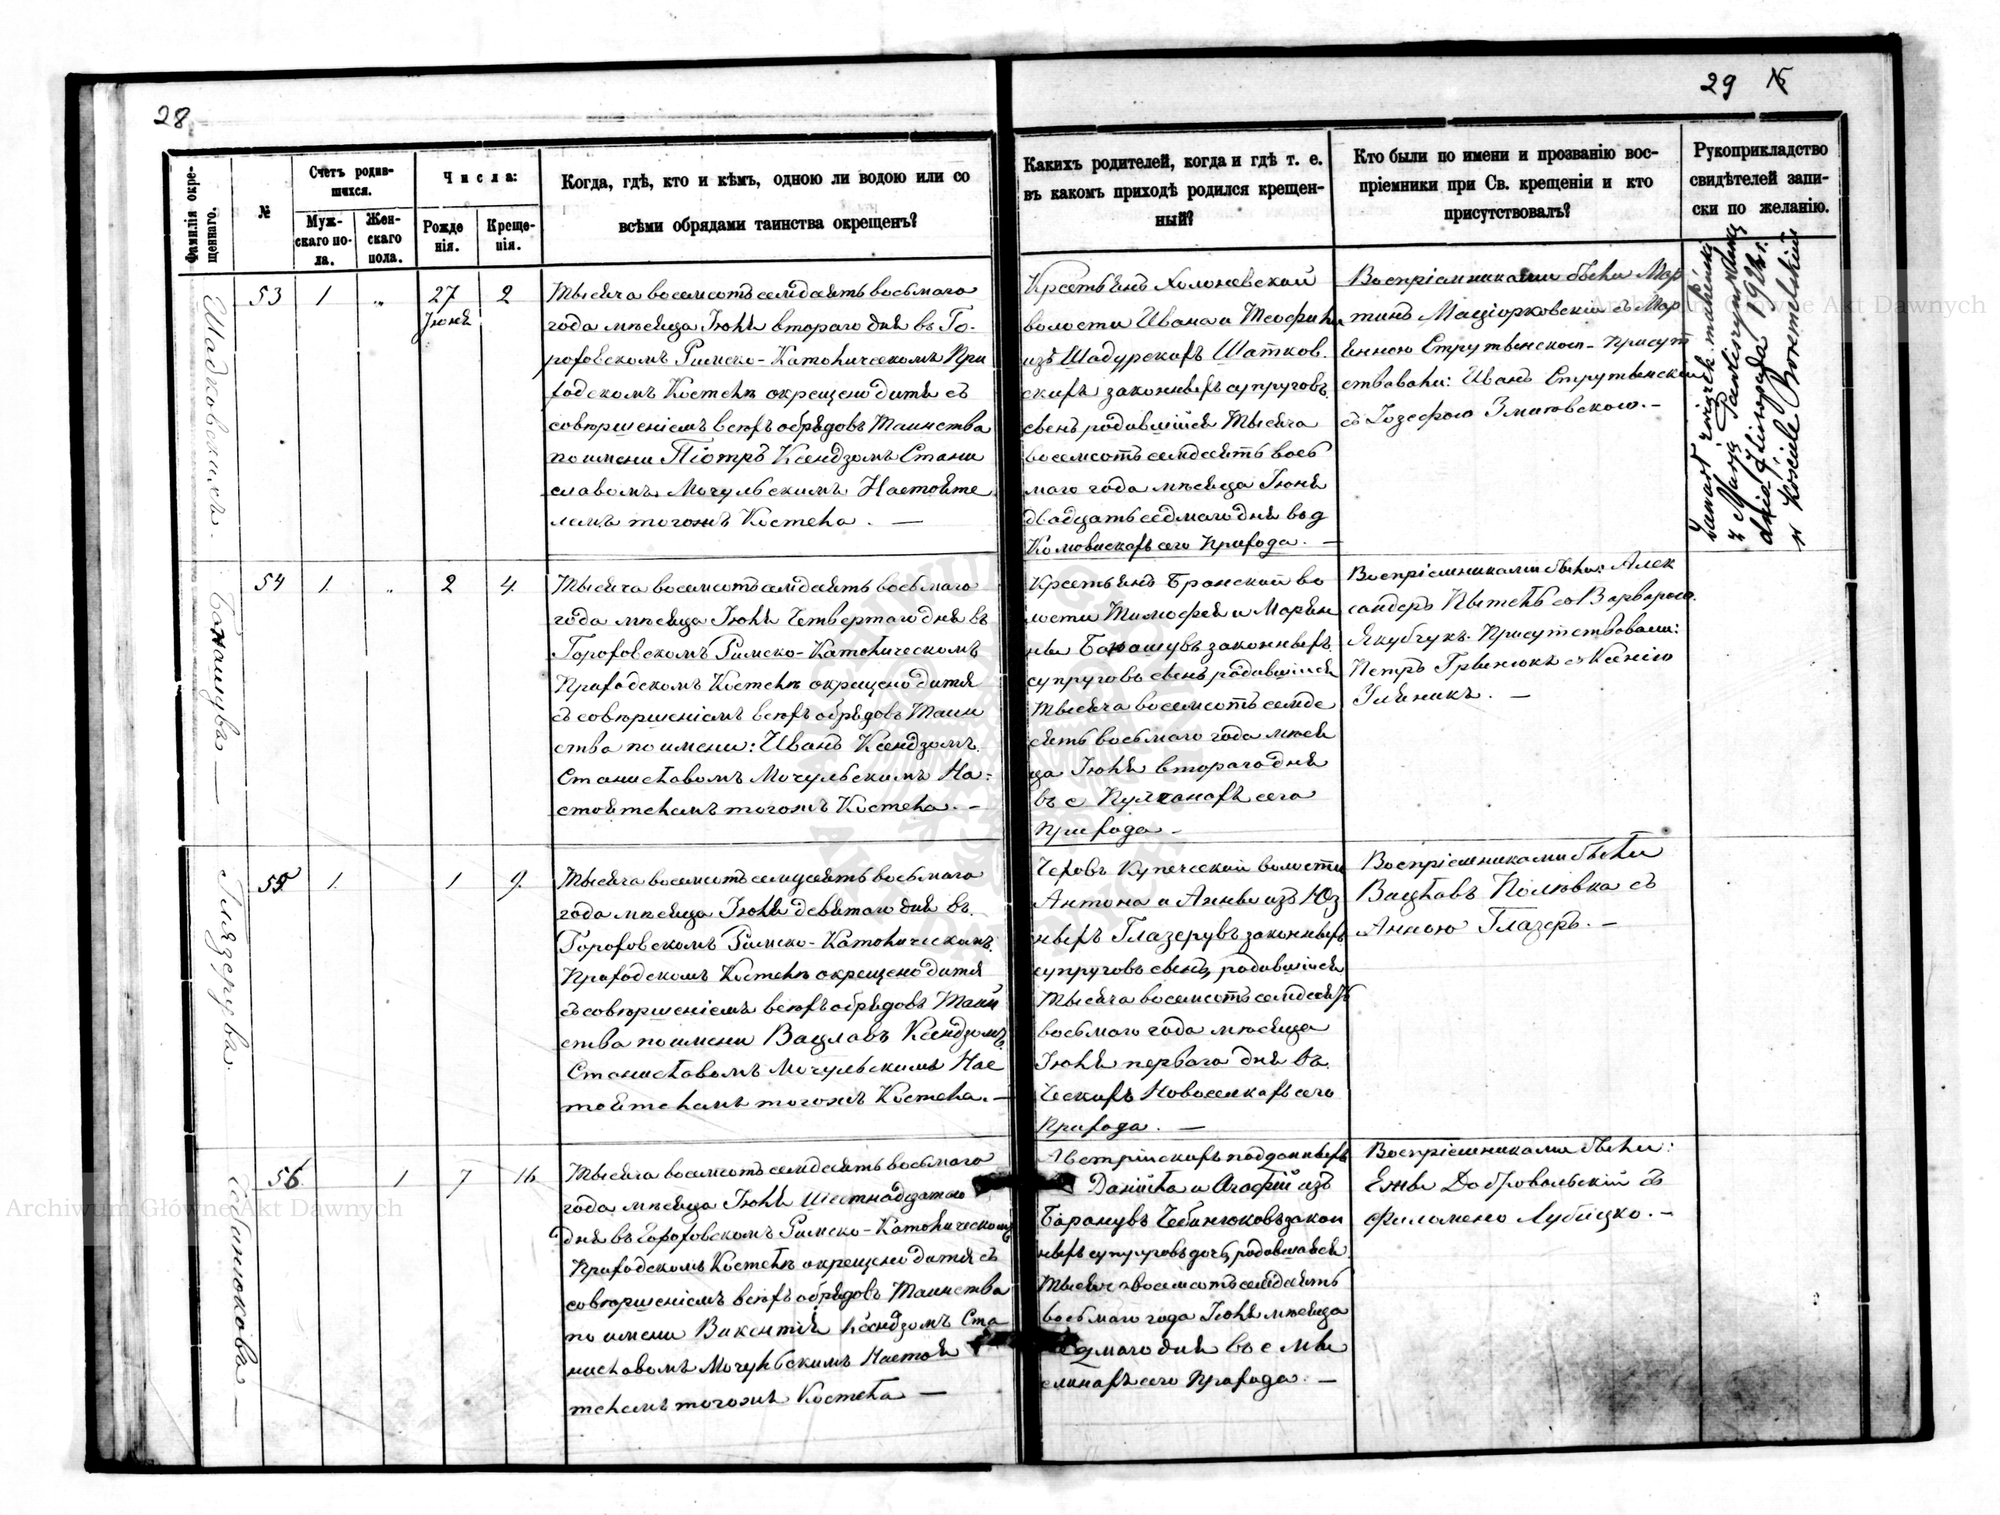 28
29
Фамилія окре-
щеннаго.
№
Счетъ родив-
шихся.
Муж-
скаго по-
ла.
Жен-
скаго
пола.
Числа:
Рожде
нія.
Креще-
нія.
Когда, гдѣ, кто и кѣмъ, одною ли водою или со
всѣми обрядами таинства окрещенъ?
Какихъ родителей, когда и гдѣ т. е.
въ какомъ приходѣ родился крещен-
ный?
Кто были по имени и прозванію вос-
пріемники при Св. крещеніи и кто
присутствовалъ?
Рукоприкладство
свидѣтелей запи-
ски по желанію.
53 1 „ 27 2
Іюня
Тысяча восемсотъ семдесятъ восьмаго
года мѣсяца Іюля втораго дня въ Го-
роховскомъ Римско-Католическомъ При
ходскомъ Костелѣ окрещено дитя съ
совершеніемъ всѣхъ обрядовъ Таинства
по имени Піотръ Ксендзомъ Стани
славомъ Мочульскимъ Настояте
лемъ тогожъ Костела. —
Крестьянъ Холоневской
волости Ивана и Теофили
изъ Шадурскихъ Шатков
скихъ законныхъ супруговъ
сынъ родившійся Тысяча
восемсотъ семдесятъ вось
маго года мѣсяца Іюня
двадцать седмаго дня въ д
сего Прихода. —
Воспріемниками были Мар
тинъ съ Мар
Присут
ствовали: Иванъ
съ Іозефою —
54 1. „ 2 4.
Тысяча восемсотъ семдесятъ восьмаго
года мѣсяца Іюля Четвертаго дня въ
Гороховскомъ Римско-Католическомъ
Приходскомъ Костелѣ окрещено дитя
съ совершеніемъ всѣхъ обрядовъ Таин
ства по имени: Иванъ Ксендзомъ
Станиславомъ Мочульскимъ На-
стоятелемъ тогожъ Костела. —
Крестьянъ Бранской во
лости Тимофея и Марян
ны законныхъ
супруговъ сынъ родившійся
Тысяча восемсотъ семде
сятъ восьмаго года мѣся
ца Іюля втораго дня
въ с сего
Прихода —
Воспріемниками были: Алек
сандеръ съ Варварою
Якубчукъ. Присутствовали:
Петръ Гринюкъ съ Ксенію
Олѣникъ. —
55. 1. 1 9.
Глязерува
Тысяча восемсотъ семдесятъ восьмаго
года мѣсяца Іюля девятаго дня въ
Гороховскомъ Римско-Католическомъ
Приходскомъ Костелѣ окрещено дитя
съ совершеніемъ всѣхъ обрядовъ Таин
ства по имени Вацлавъ Ксендзомъ
Станиславомъ Мочульскимъ Нас
тоятелемъ тогожъ Костела. —
Чеховъ Купечской волости
Антона и Анны изъ Юз
ныхъ Глазерувъ законныхъ
супруговъ сынъ, родившійся
Тысяча восемсотъ семдесятъ
восьмаго года мѣсяца
Іюля перваго дня въ
Ческихъ Новоселкахъ сего
Прихода. —
Воспріемниками были
Вацлавъ Полювка съ
Анною Глазеръ. —
56 1 7 16
Тысяча восемсотъ семдесятъ восьмаго
года мѣсяца Іюля Шестнадцатаго
дня въ Гороховскомъ Римско-Католическомъ
Приходскомъ Костелѣ окрещено дитя съ
совершеніемъ всѣхъ обрядовъ Таинства
по имени Викентія Ксендзомъ Ста
ниславомъ Мочульскимъ Настоя
телемъ тогожъ Костела —
Австрійскихъ подданныхъ
Даніила и Агафіи изъ
Баранувъ закон
ныхъ супруговъ дочь, родившаяся
Тысяча восемсотъ семдесятъ
восьмаго года Іюля мѣсяца
седмаго дня въ с
сего Прихода. —
Воспріемниками были:
Ежы Добровольскій съ
Филомено —
Archiwum Główne Akt Dawnych
Archiwum Główne Akt Dawnych